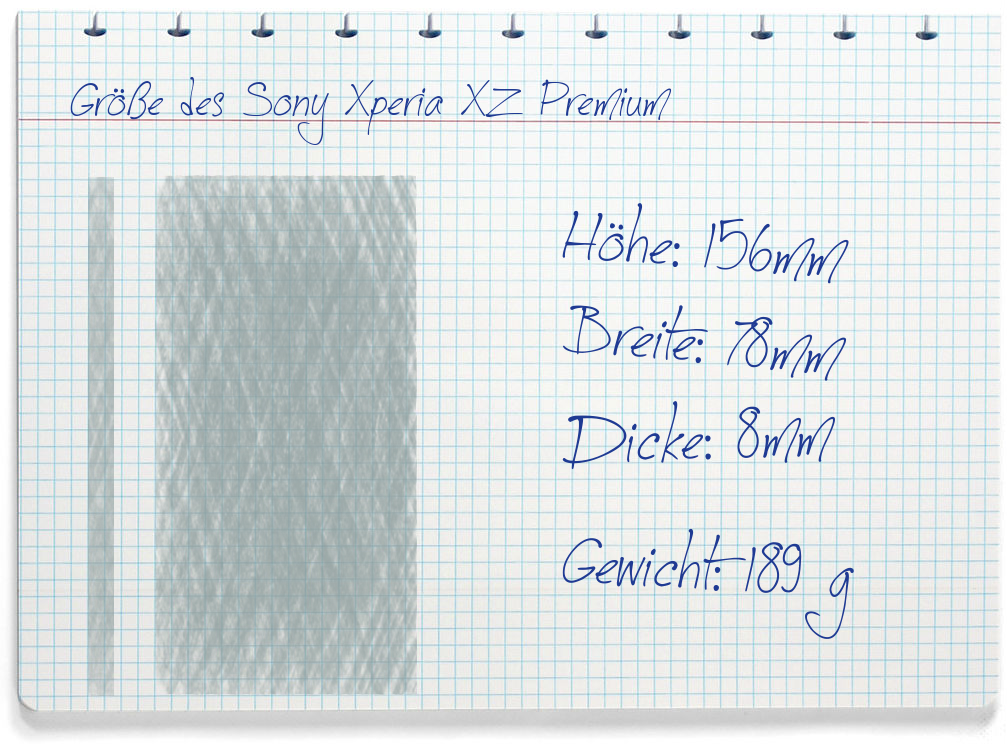 Größe des Sony Xperia XZ Premium
Höhe: 156mm
Breite: 78mm
Dicke: 8mm
Gewicht: 189 g